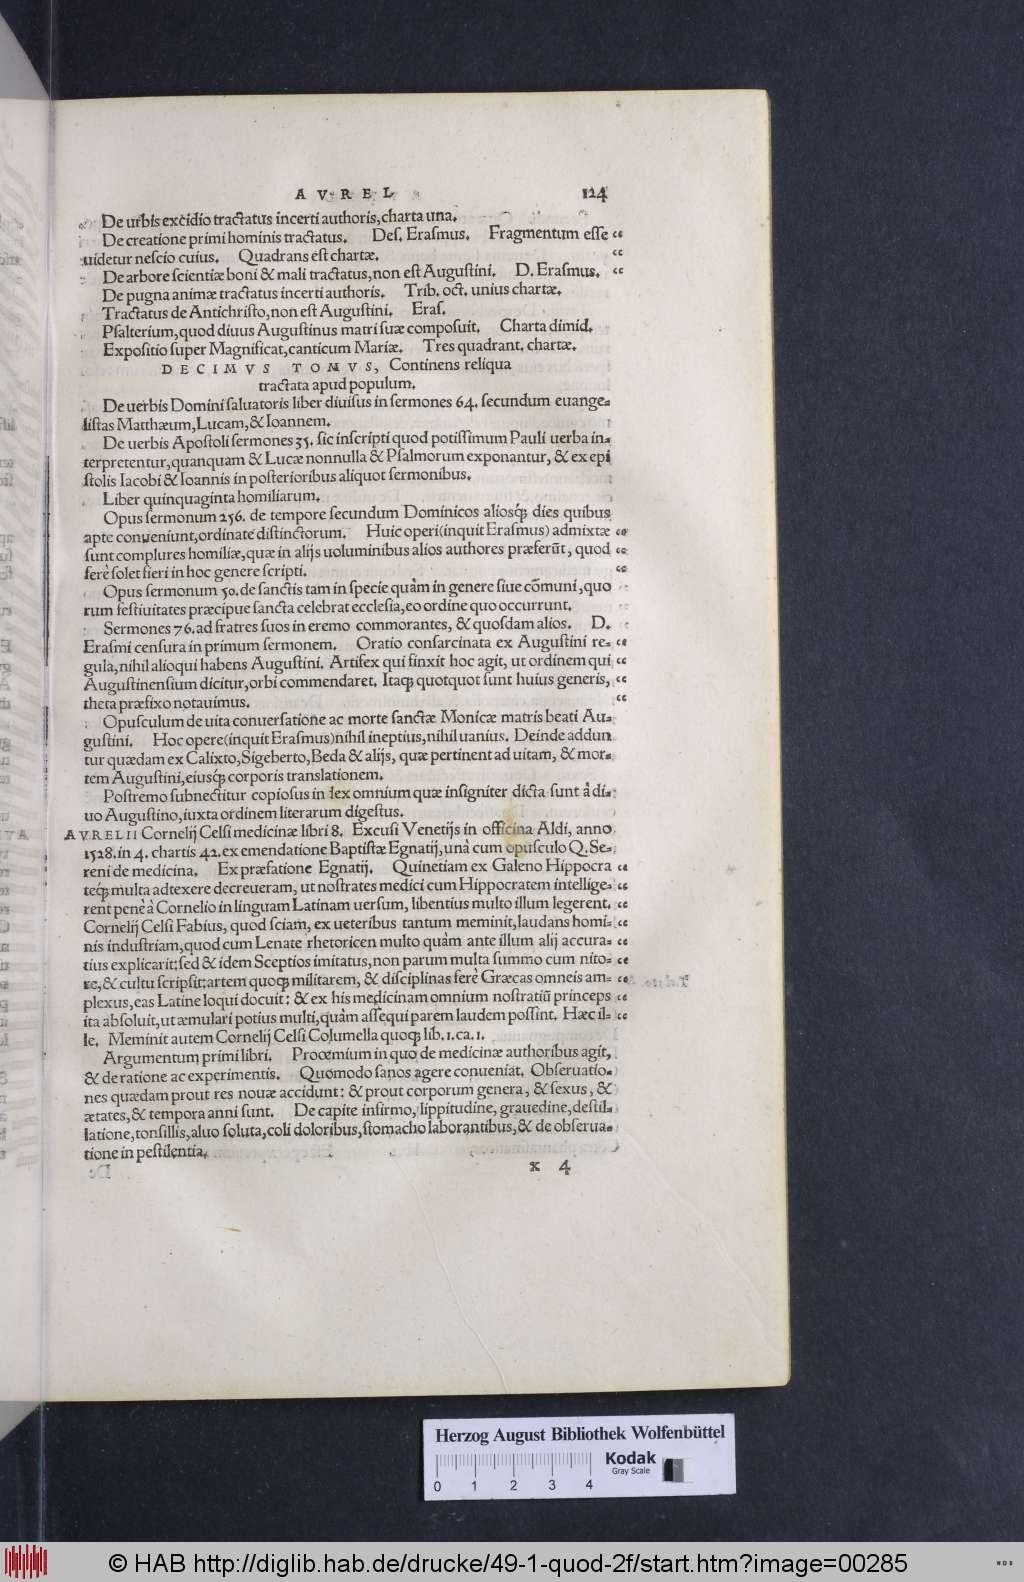 AVREL 124
De urbis excidio tractatus incerti authoris, charta una.
De creatione primi hominis tractatus. Des. Erasmus. Fragmentum esse “
uidetur nescio cuius. Quadrans est chartæ. “
De arbore scientiæ boni & mali tractatus, non est Augustini. D. Erasmus. “
De pugna animæ tractatus incerti authoris. Trib. oct. unius chartæ.
Tractatus de Antichristo, non est Augustini. Eras.
Psalterium, quod diuus Augustinus matri suæ composuit. Charta dimid.
Expositio super Magnificat, canticum Mariæ. Tres quadrant. chartæ.
DECIMVS TOMVS, Continens reliqua
tractata apud populum.
De uerbis Domini saluatoris liber diuisus in sermones 64. secundum euange-
listas Matthæum, Lucam, & Ioannem.
De uerbis Apostoli sermones 35. sic inscripti quod potissimum Pauli uerba in-
terpretentur, quanquam & Lucæ nonnulla & Psalmorum exponantur, & ex epi
stolis Iacobi & Ioannis in posterioribus aliquot sermonibus.
Liber quinquaginta homiliarum.
Opus sermonum 256. de tempore secundum Dominicos aliosq́; dies quibus
apte conueniunt, ordinate distinctorum. Huic operi (inquit Erasmus) admixtæ “
sunt complures homiliæ, quæ in alijs uoluminibus alios authores præferūt, quod “
ferè solet fieri in hoc genere scripti. “
Opus sermonum 50. de sanctis tam in specie quàm in genere siue cōmuni, quo
rum festiuitates præcipue sancta celebrat ecclesia, eo ordine quo occurrunt.
Sermones 76. ad fratres suos in eremo commorantes, & quosdam alios. D. “
Erasmi censura in primum sermonem. Oratio consarcinata ex Augustini re- “
gula, nihil alioqui habens Augustini. Artifex qui finxit hoc agit, ut ordinem qui “
Augustinensium dicitur, orbi commendaret. Itaq; quotquot sunt huius generis, “
theta præfixo notauimus. “
Opusculum de uita conuersatione ac morte sanctæ Monicæ matris beati Au-
gustini. Hoc opere (inquit Erasmus) nihil ineptius, nihil uanius. Deinde addun
tur quædam ex Calixto, Sigeberto, Beda & alijs, quæ pertinent ad uitam, & mor-
tem Augustini, eiusq́; corporis translationem.
Postremo subnectitur copiosus in dex omnium quæ insigniter dicta sunt à di-
uo Augustino, iuxta ordinem literarum digestus.
AVRELII Cornelij Celsi medicinæ libri 8. Excusi Venetijs in officina Aldi, anno
1528. in 4. chartis 42. ex emendatione Baptistæ Egnatij, unà cum opusculo Q. Se-
reni de medicina. Ex præfatione Egnatij. Quinetiam ex Galeno Hippocra “
teq́; multa adtexere decreueram, ut nostrates medici cum Hippocratem intellige- “
rent penè à Cornelio in linguam Latinam uersum, libentius multo illum legerent. “
Cornelij Celsi Fabius, quod sciam, ex ueteribus tantum meminit, laudans homi- “
nis industriam, quod cum Lenate rhetoricen multo quàm ante illum alij accura- “
tius explicarit: sed & idem Sceptios imitatus, non parum multa summo cum nito- “
re, & cultu scripsit: artem quoq; militarem, & disciplinas ferè Græcas omneis am- “
plexus, eas Latine loqui docuit: & ex his medicinam omnium nostratiū princeps “
ita absoluit, ut æmulari potius multi, quàm assequi parem laudem possint. Hæc il- “
le. Meminit autem Cornelij Celsi Columella quoq; lib. 1. ca. 1.
Argumentum primi libri. Procemium in quo de medicinæ authoribus agit,
& de ratione ac experimentis. Quomodo sanos agere conueniat. Obseruatio-
nes quædam prout res nouæ accidunt: & prout corporum genera, & sexus, &
ætates, & tempora anni sunt. De capite infirmo, lippitudine, grauedine, destil-
latione, tonsillis, aluo soluta, coli doloribus, stomacho laborantibus, & de obserua-
tione in pestilentia.
x 4
Herzog August Bibliothek Wolfenbüttel
Kodak
Gray Scale
0 1 2 3 4
© HAB http://diglib.hab.de/drucke/49-1-quod-2f/start.htm?image=00285